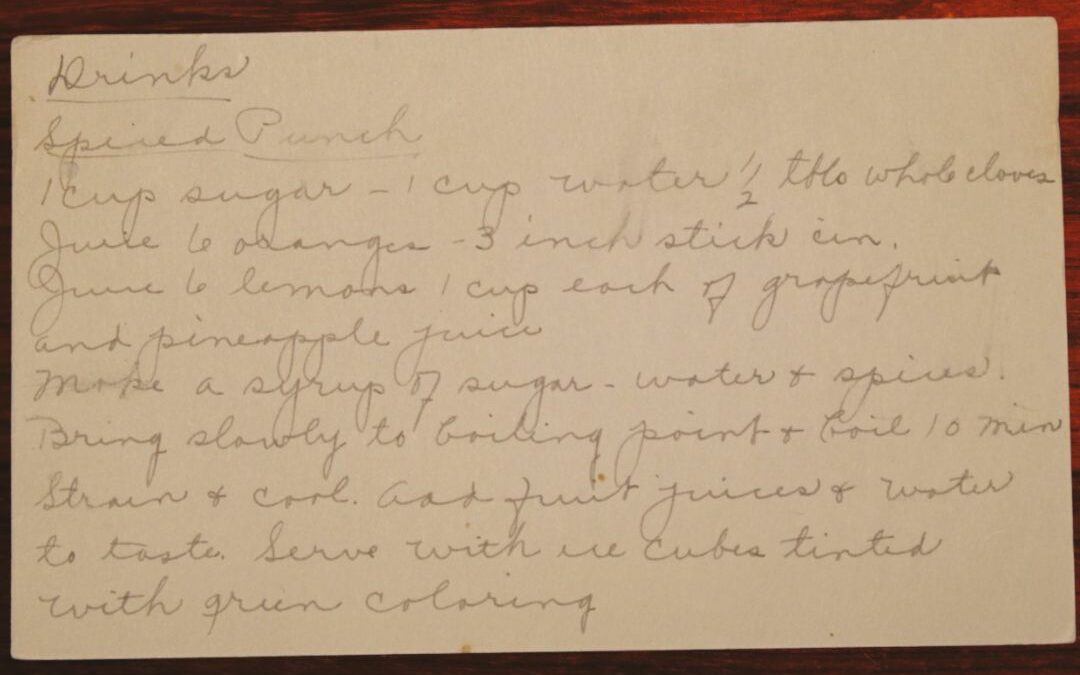 Drinks
Spiced Punch
1 cup sugar - 1 cup water 1/2 tbls whole cloves
Juice 6 oranges - 3 inch stick cin.
Juice 6 lemons 1 cup each of grapefruit
and pineapple juice
Make a syrup of sugar - water & spices.
Bring slowly to boiling point & boil 10 min
Strain & cool. Add fruit juices & water
to taste. Serve with ice cubes tinted
with green coloring